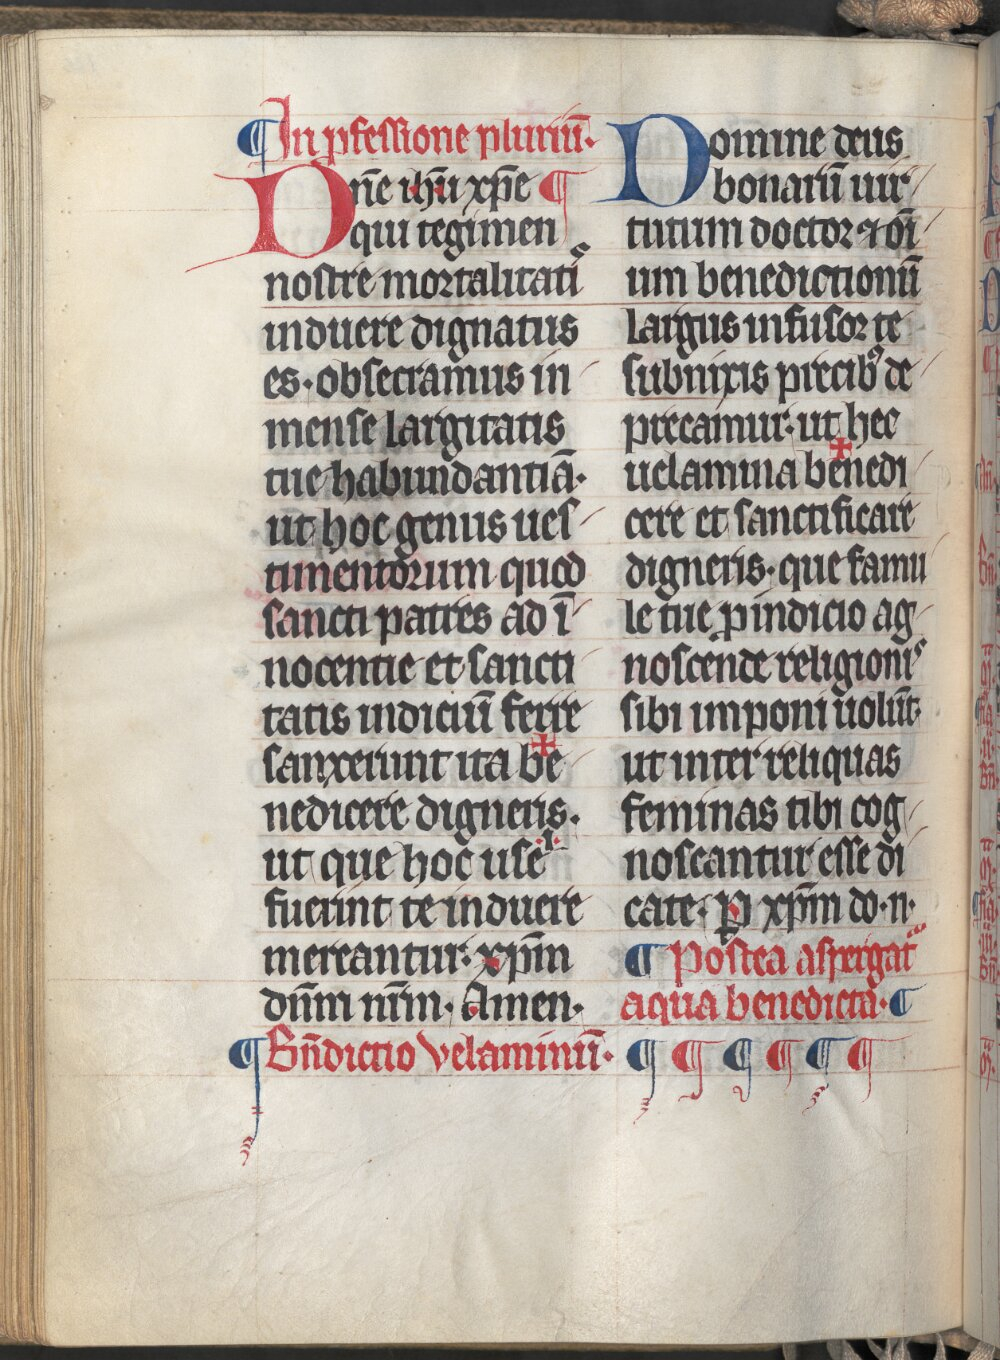 ¶ In pfessione pluriū·
Dn̄e ih̄u xp̄e ¶
qui regimen
nostre mortalitatiˢ
induere dignatus
es· obsecramus in
mense largitatis
tue habundantiā·
ut hoc genus ues
timentorum quod
sancti patres ad ī
nocentie et sancti
tatis indiciū ferre
sanxerunt ita be
nedicere digneris·
ut que hoc use
fuerint te induere
mereantur· xp̄m
dn̄m nr̄m· Amen·
¶ Bn̄dictio velaminū·
Domine deus
bonarū uir
tutum doctor ⁊ oī
um benedictionū
largus infusor te
subnixis precibꝰ de
precamur· ut hec
uelamina benedi
cere et sanctificare
digneris· que famu
le tue ꝓ indicio ag
noscende religioniˢ
sibi imponi uolūt·
ut inter reliquas
feminas tibi cog
noscantur esse di
cate· P xp̄m do· n·
¶ Postea aspergat᷑
aqua benedicta· ¶
¶ ¶ ¶ ¶ ¶ ¶